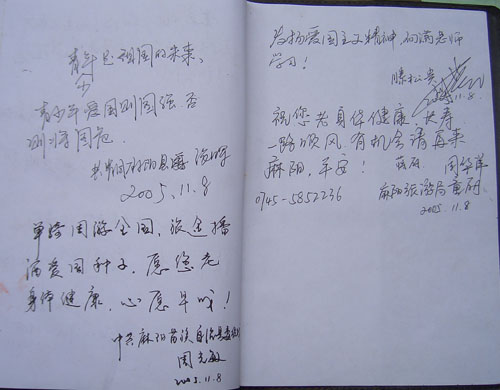 青年是祖国的未来、
少
青少年爱国则国强否
则将国危
2005.11.8
单骑周游全国,旅途播
满爱国种子,愿您老
身体健康,心愿早成!
中共麻阳苗族自治县委
周克敏
2005.11.8
发扬爱国主义精神,向满老师
学习!
滕松
11.8.
祝您老身体健康、长寿
一路顺风,有机会请再来
麻阳,平安!
周华萍
0745-5852236
麻阳旅游局
2005.11.8